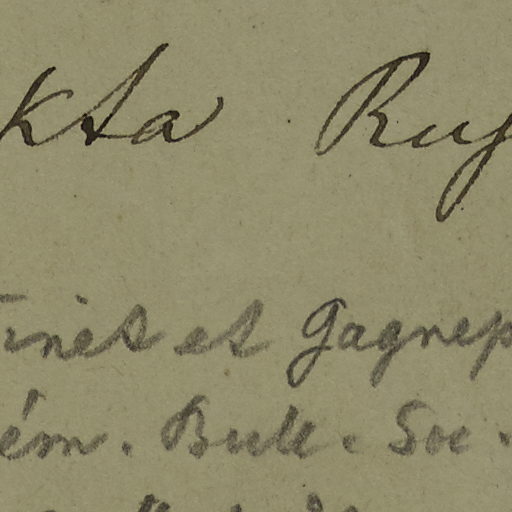 kta Ruy
inet et Gagnep
ém. Bull. Soc.